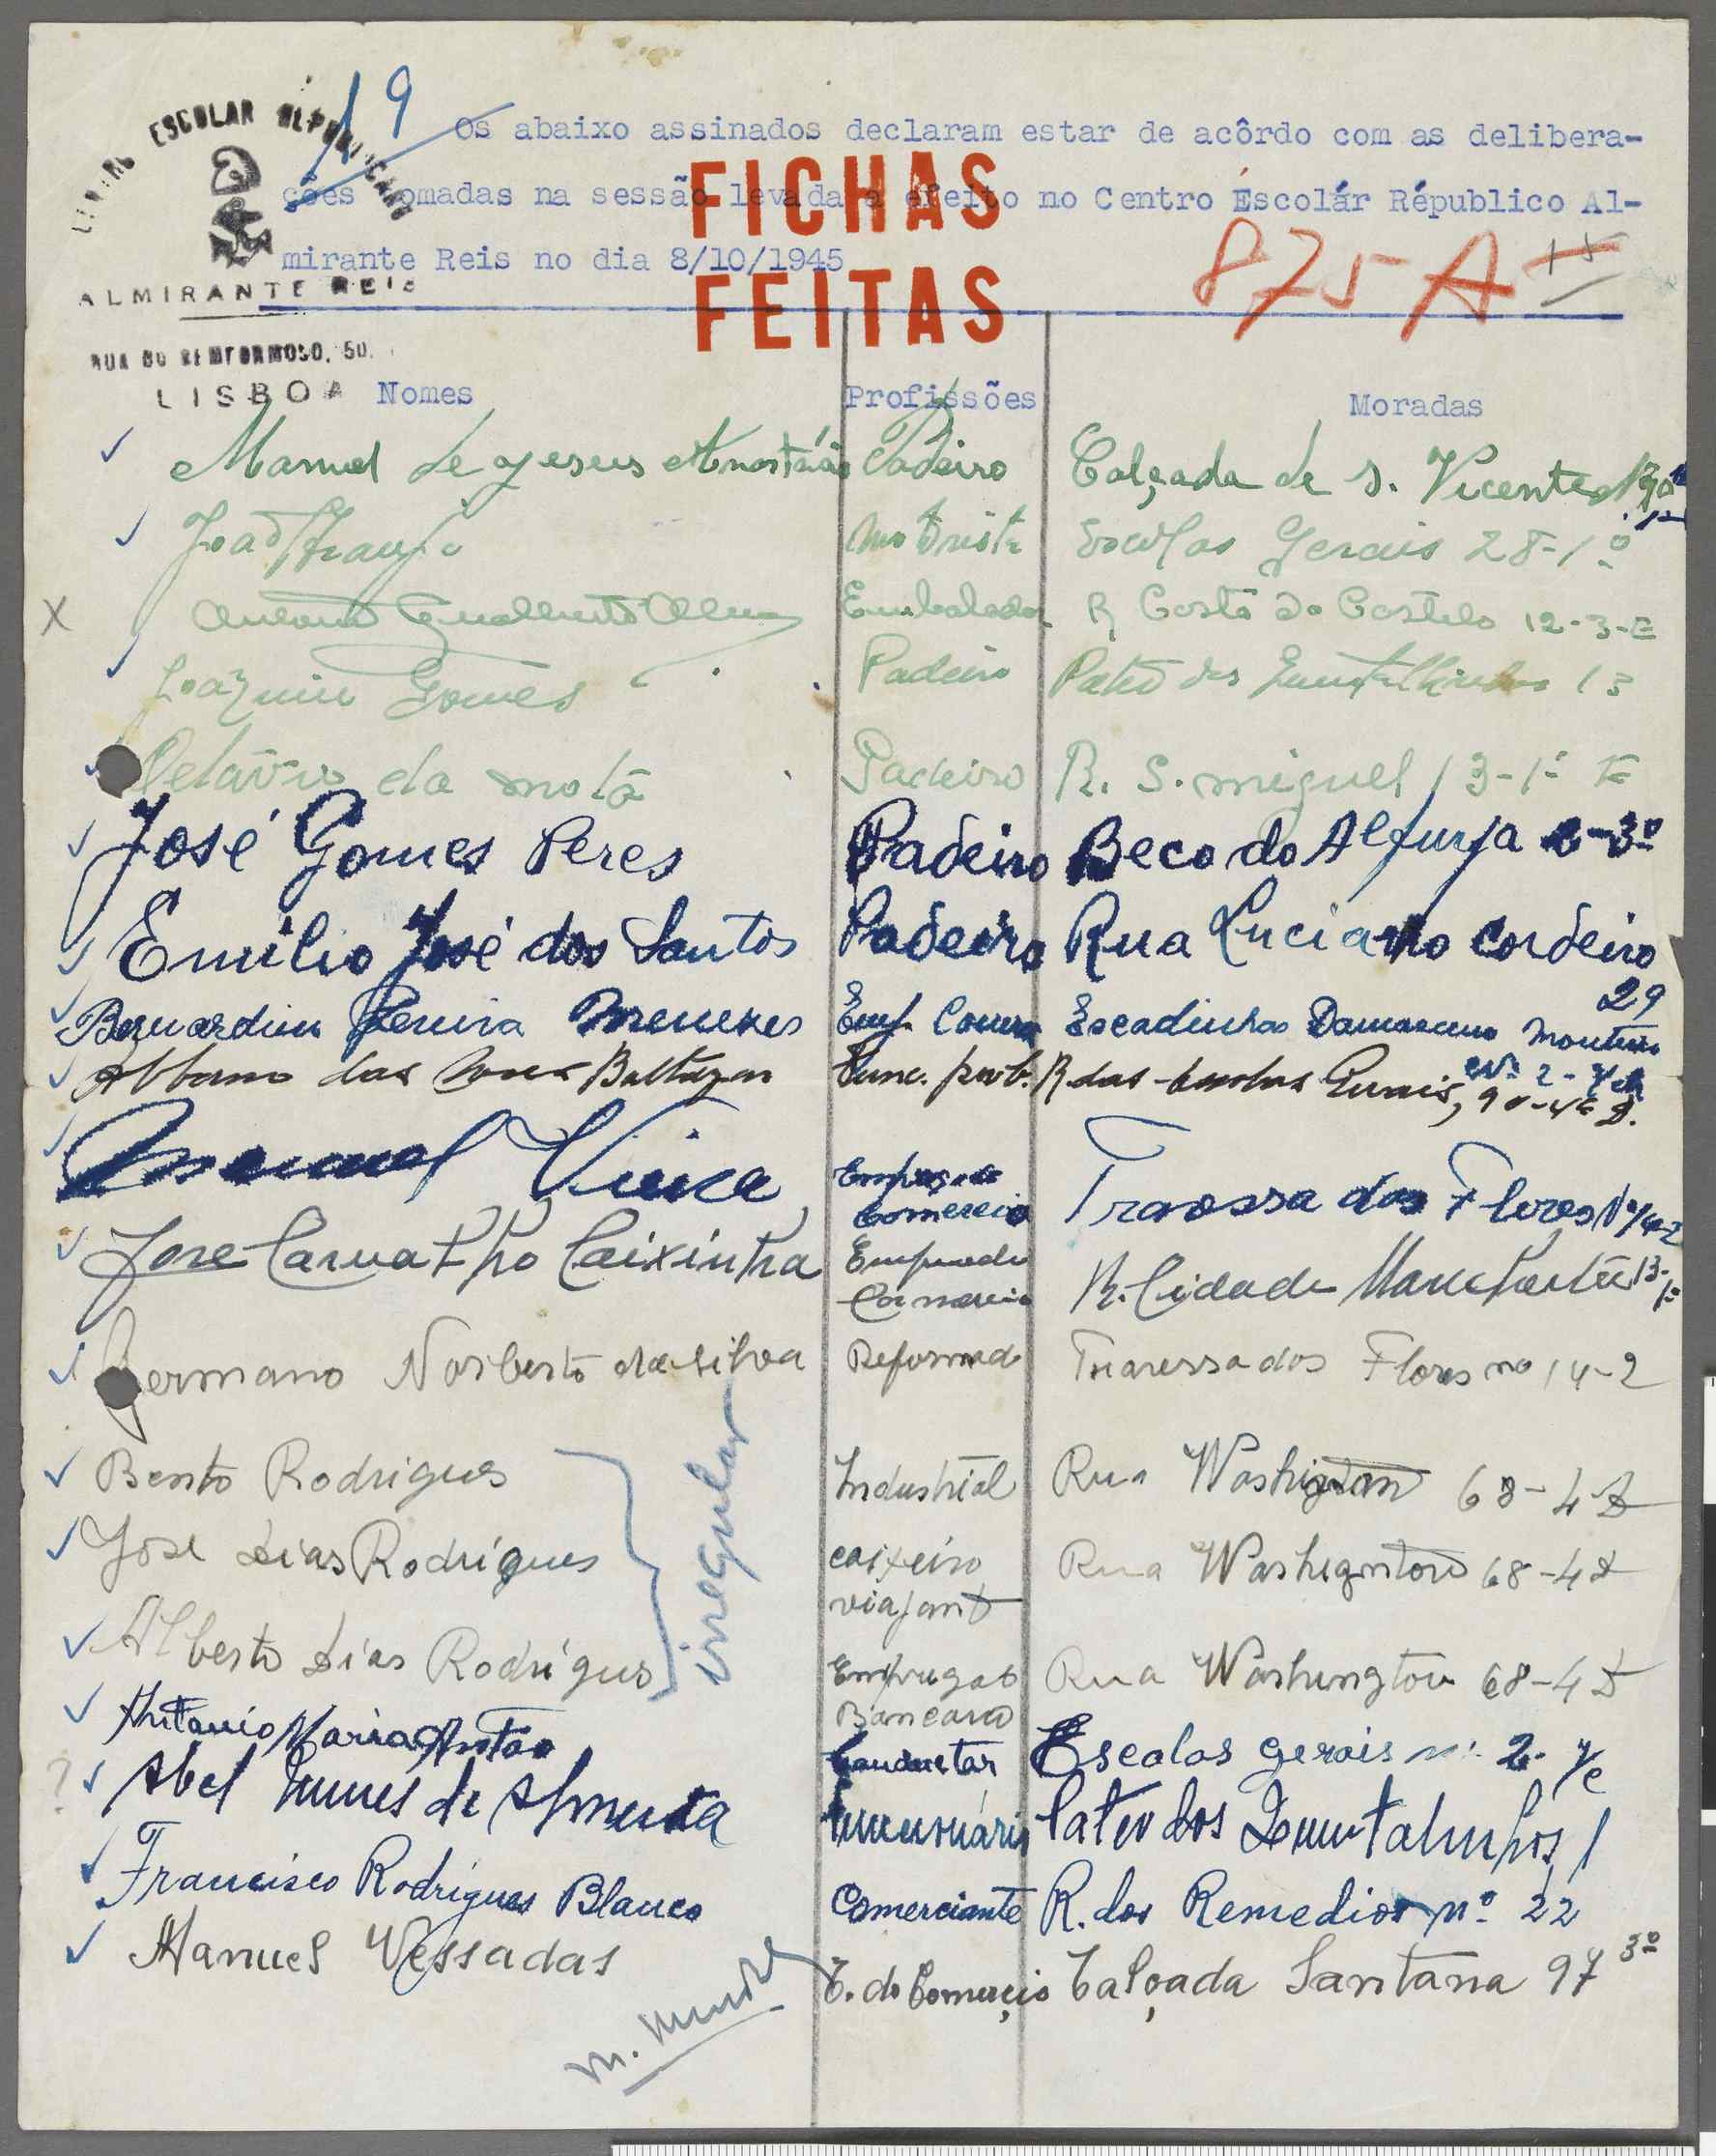 19
CENTRO ESCOLAR REPUBLICANO
ALMIRANTE REIS
RUA DO BEMFORMOSO, 50.
LISBOA
Os abaixo assinados declaram estar de acôrdo com as delibera-
ções tomadas na sessão levada a efeito no Centro Éscolár Républico Al-
mirante Reis no dia 8/10/1945
FICHAS
FEITAS
875 A
15
Nomes Profissões Moradas
Manuel de Jesus Padeiro Calçada de S. Vicente
João Araujo Motorista Escolas Gerais 28-1º
Embalador R Costa do Castelo 12-3-E
Joaquim Gomes Padeiro Pateo das 13
Octávio da Mota Padeiro R. S. Miguel 13-1º E
José Gomes Peres Padeiro Beco do Alfurja 2-3º
Emilio José dos Santos Padeiro Rua Luciano Cordeiro
29
Bernardim Pereira Menezes Emp. Comer Escadinhas Damasceno Monteiro
nº 2-
Albano das Neves Baltazar Func. pub. R. das Escolas Gerais, 90-4º D.
Manuel Vieira Empregado Comercio Travossa das Flores
Jose Carvalho Caixinha Empregado Comercio R. Cidade Manchester 13-1º
Germano Norberto da Silva Reformado Travessa das Flores no 14-2
Bento Rodrigues Industrial Rua Washigton 68-4 D
José Dias Rodrigues caixeiro viajante Rua Washignton 68-4 D
Alberto Dias Rodrigues Empregado Bancario Rua Washington 68-4 D
irregular
Antonio Maria Antão Conductor Escolas gerais nº 2-
? Abel Nunes de Almeida Funcionário Pateo dos Quintalinhos, 1
Francisco Rodrigues Blanco Comerciante R. dos Remedios nº 22
Manuel Vessadas E. do Comerçio Calçada Santana 97 3º